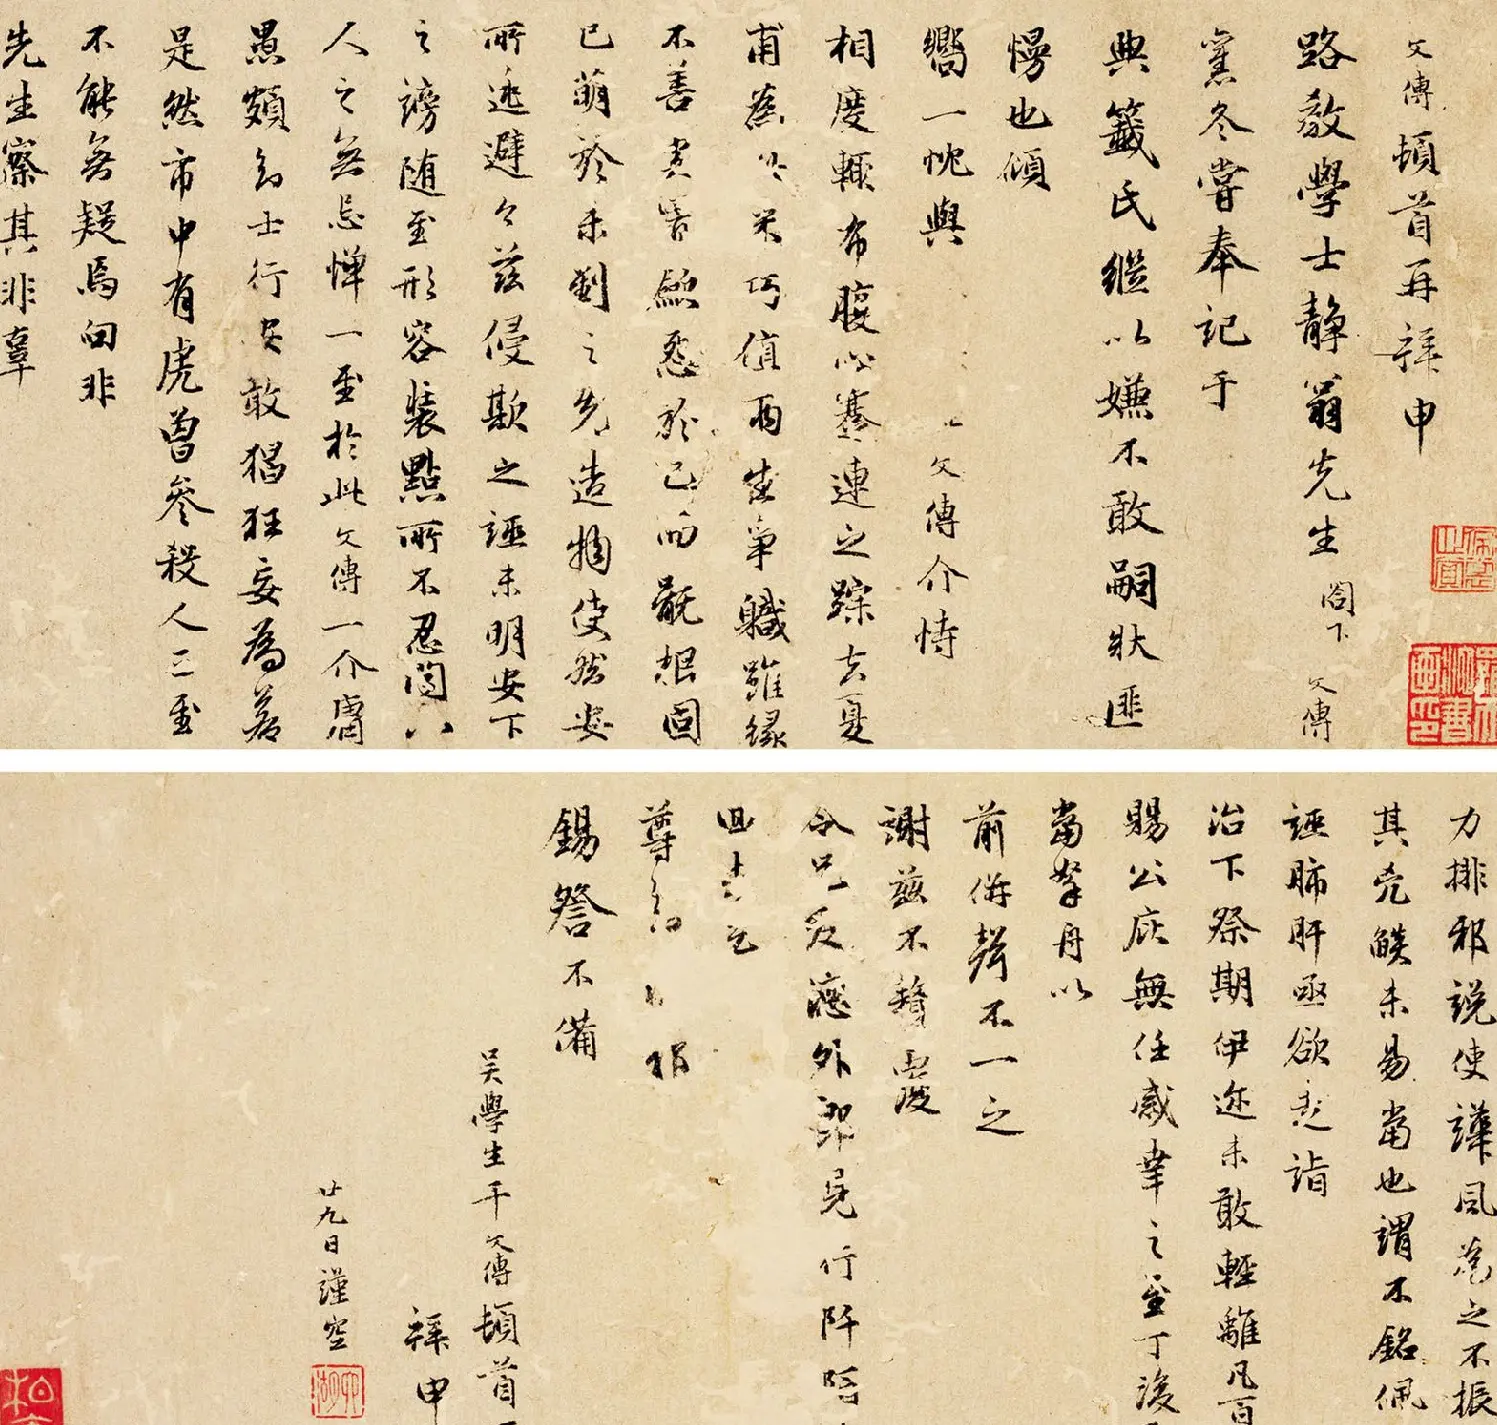 文傳頓首再拜申
路教學士靜翁先生閤下文傳
舊冬嘗奉記于
典籤氏繼以嫌不敢嗣狀匪
慢也傾
嚮一忱與文傳介恃
相度輒布腹心蹇連之蹤去夏
甫為巧值兩生爭職雖緣
不善於已而戳根固
已萌於未剡之先造物使然安
所逃避今茲侵欺之誣未明安下
之謗随至形容裝點所不忍聞以
人之無忌憚一至於此文傳一介庸
愚頗知士行安敢猖狂妄為若
是然市中有虎曾參殺人三至
不能無疑焉向非
先生察其非辜
力排邪說使譁風為之不振
其危燄未易當也謂不銘佩
誣肺肝亟欲走詣
治下祭期伊迩未敢輕離凡百
賜公庇無任感幸之至丁後
當拏舟以
前併聲不一之
謝茲不贅
令兄外郎晃行阡陌
回去乞
尊
錫詧不備
吴學生干文傳頓首
拜申
廿九日謹空